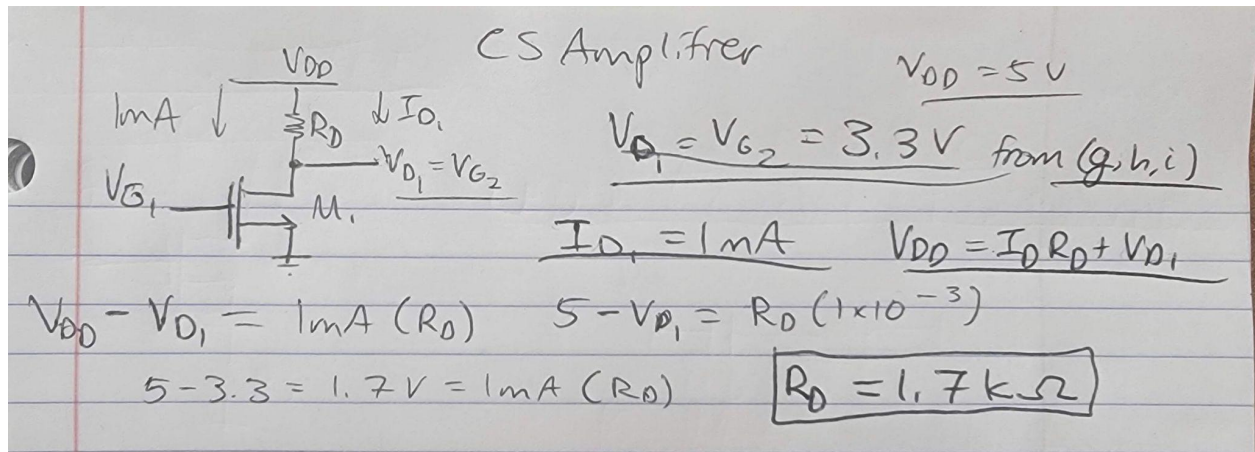 CS Amplifier
VDD = 5V
VDD
1mA ↓
RD
↓ ID1
VD1 = VG2
VG1
M1
VD1 = VG2 = 3.3V from (g,h,i)
ID1 = 1mA
VDD = ID RD + VD1
VDD - VD1 = 1mA (RD)
5 - VD1 = RD (1x10^-3)
5-3.3 = 1.7V = 1mA (RD)
RD = 1.7kΩ